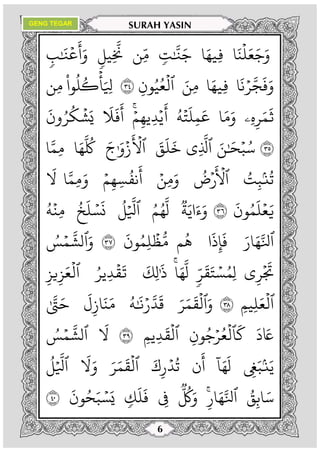 GENG TEGAR
SURAH YASIN
وَجَعَلْنَا فِيهَا جَنَّٰتٍ مِّن نَّخِيلٍ وَأَعْنَٰبٍ
وَفَجَّرْنَا فِيهَا مِنَ ٱلْعُيُونِ ٣٤ لِيَأْكُلُوا۟ مِن
ثَمَرِهِۦ وَمَا عَمِلَتْهُ أَيْدِيهِمْ ۖ أَفَلَا يَشْكُرُونَ
٣٥ سُبْحَٰنَ ٱلَّذِى خَلَقَ ٱلْأَزْوَٰجَ كُلَّهَا مِمَّا
تُنۢبِتُ ٱلْأَرْضُ وَمِنْ أَنفُسِهِمْ وَمِمَّا لَا
يَعْلَمُونَ ٣٦ وَءَايَةٌ لَّهُمُ ٱلَّيْلُ نَسْلَخُ مِنْهُ
ٱلنَّهَارَ فَإِذَا هُم مُّظْلِمُونَ ٣٧ وَٱلشَّمْسُ
تَجْرِى لِمُسْتَقَرٍّ لَّهَا ۚ ذَٰلِكَ تَقْدِيرُ ٱلْعَزِيزِ
ٱلْعَلِيمِ ٣٨ وَٱلْقَمَرَ قَدَّرْنَٰهُ مَنَازِلَ حَتَّىٰ
عَادَ كَٱلْعُرْجُونِ ٱلْقَدِيمِ ٣٩ لَا ٱلشَّمْسُ
يَنۢبَغِى لَهَآ أَن تُدْرِكَ ٱلْقَمَرَ وَلَا ٱلَّيْلُ
سَابِقُ ٱلنَّهَارِ ۚ وَكُلٌّ فِى فَلَكٍ يَسْبَحُونَ ٤٠
6